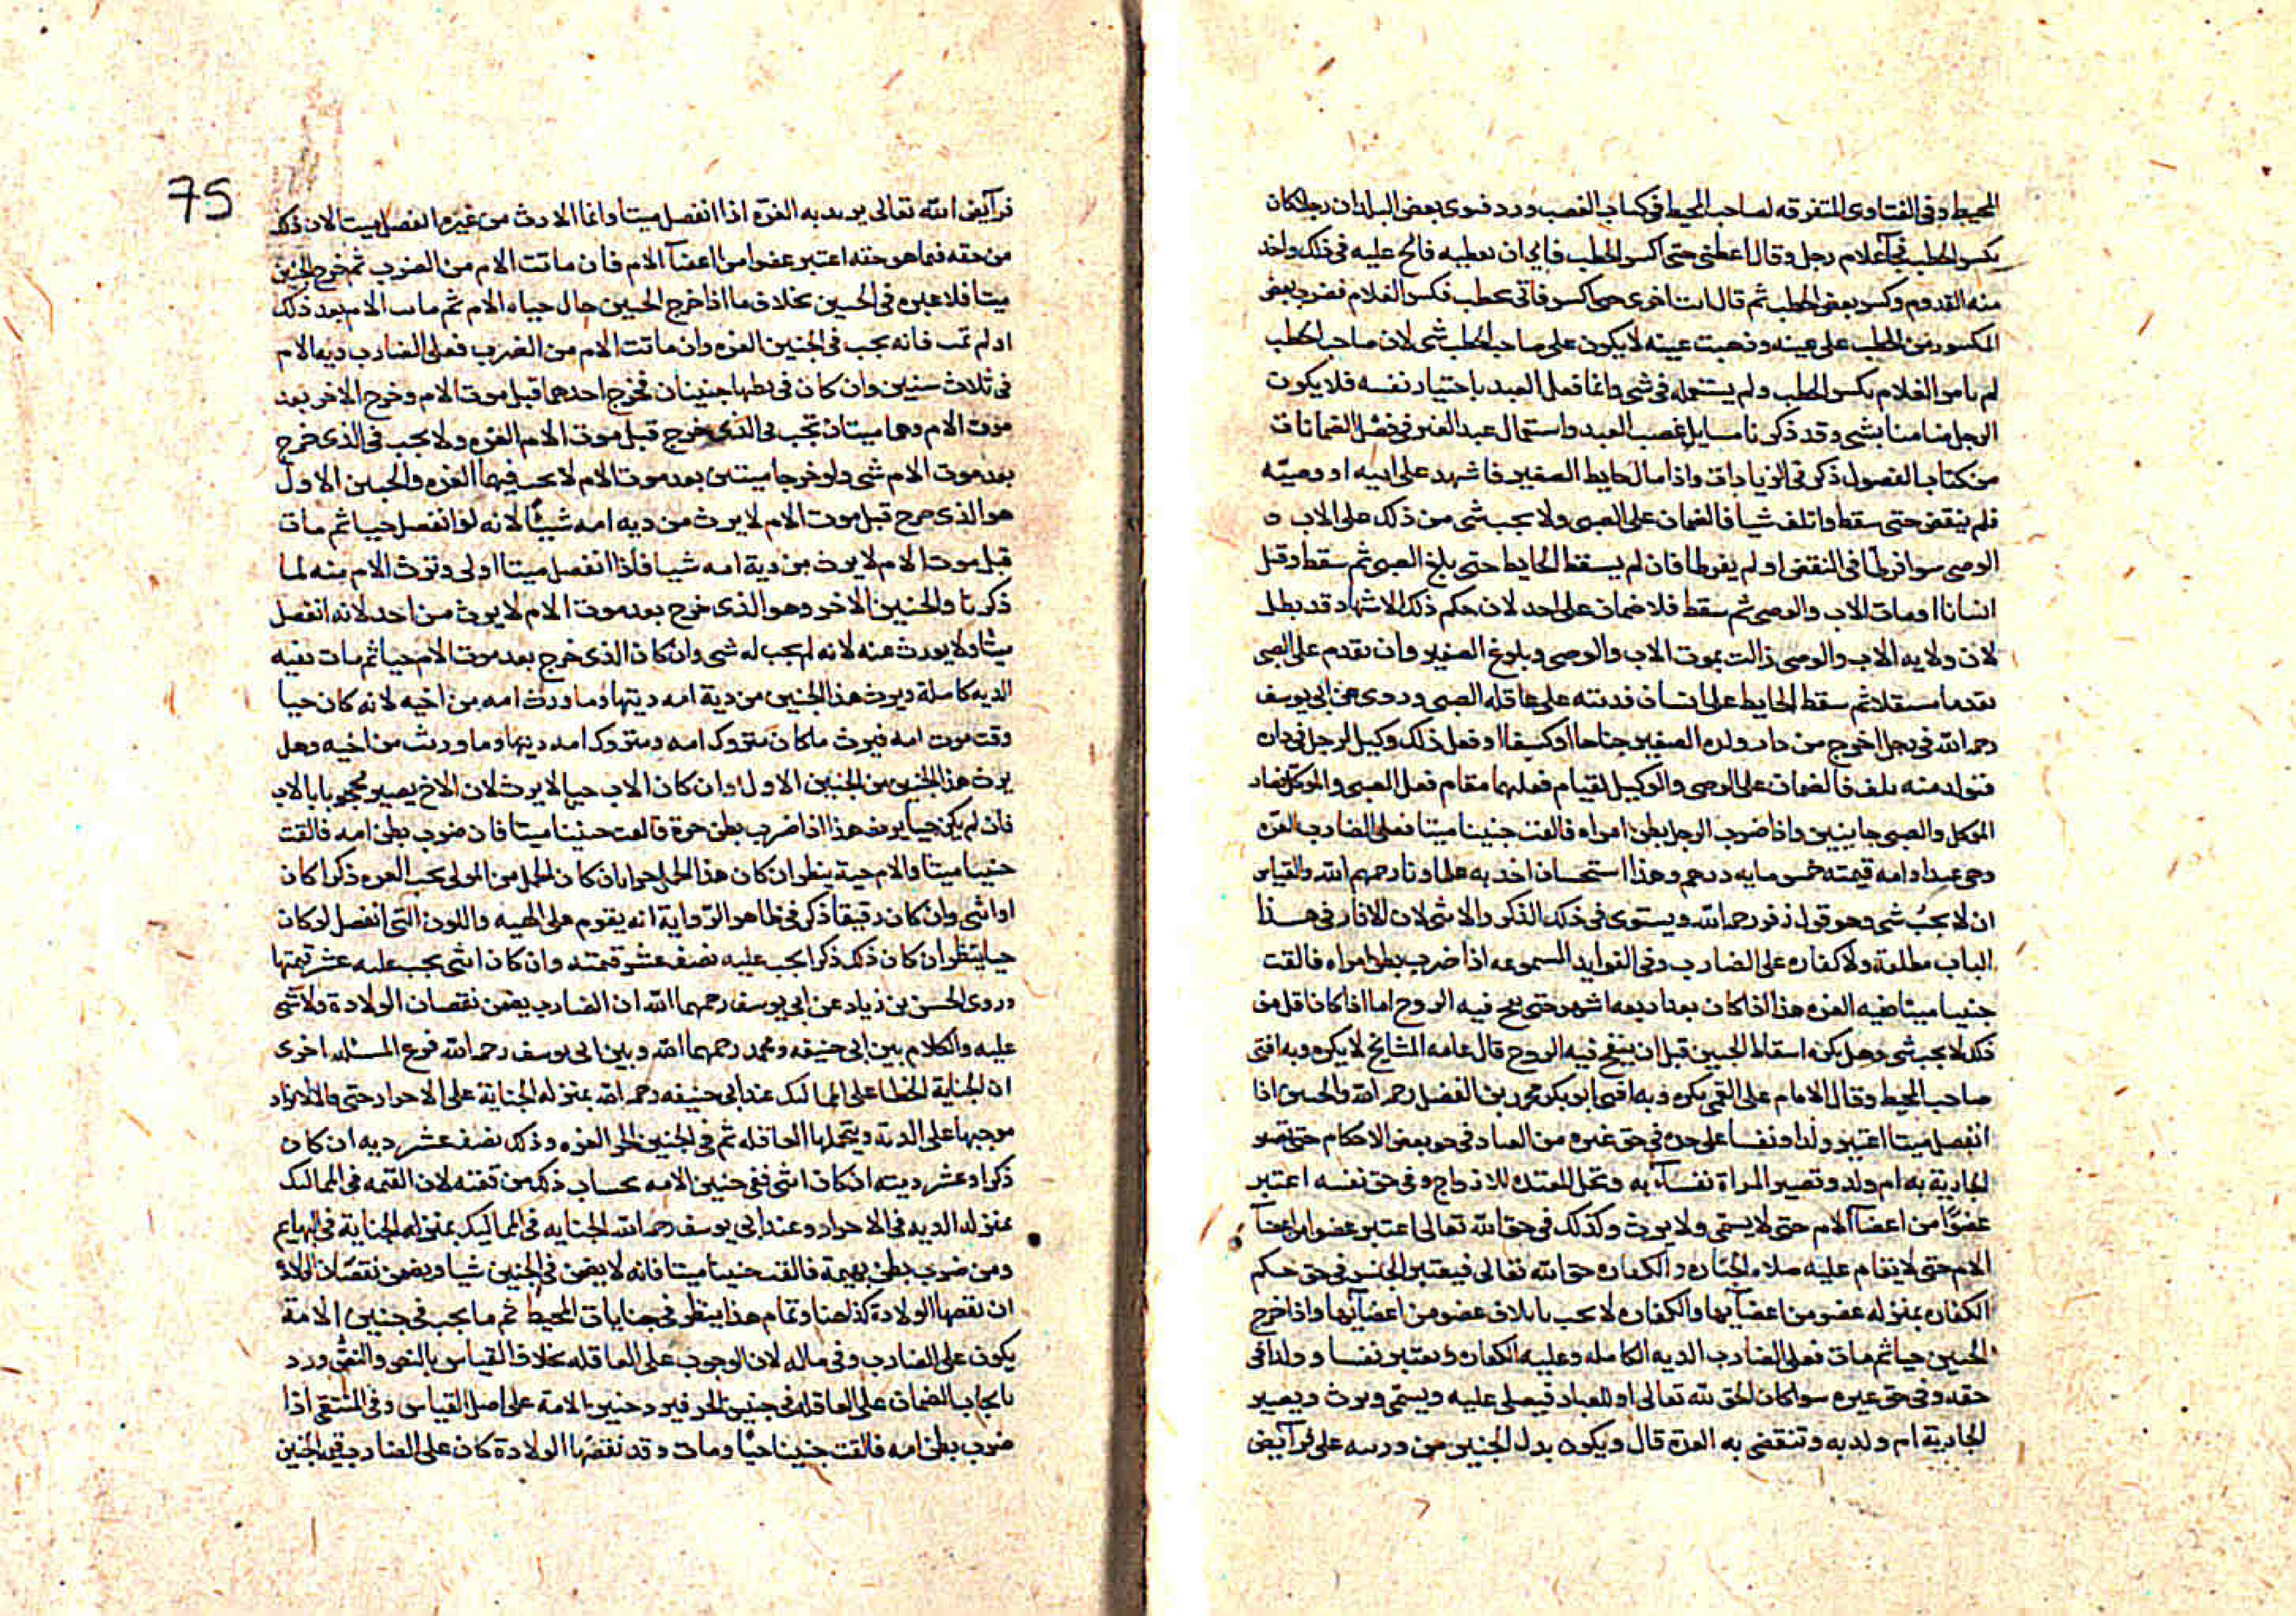 المحيط وفى الفتاوى المتفرقه لصاحب المحيط فى كتاب الغصب ورد فتوى بعض البلدان رجل كان
يكسر الحطب فجآ غلام رجل وقال اعطنى حتى اكسر الحطب فابى ان يعطيه فالح عليه فى ذلك واخذ
منه القدوم وكسر بعض الحطب ثم قال ات اخرى حتى اكسر فاتى بحطب فكسر الغلام فضرب بعض
المكسور من الحطب على عينه وذهبت عينه لا يكون على صاحب الحطب شى لان صاحب الحطب
لم يامر الغلام بكسر الحطب ولم يستعمله فى شى وانما فعل العبد باختيار نفسه فلا يكون
الرجل ضامنا بشى وقد ذكرنا مسايل غصب العبد واستعمال عبد الغير فى فصل الضمانات
من كتاب الفصول ذكر فى الزيادات واذا مال حايط الصغير فاشهد على ابيه او وصيّه
فلم ينقض حتى سقط واتلف شيا فالضمان على الصبى ولا يجب شى من ذلك على الاب و
الوصى سوا فرطا فى النقض او لم يفرطا فان لم يسقط الحايط حتى بلغ الصبى ثم سقط وقتل
انسانا او مات الاب والوصى ثم سقط فلا ضمان على احد لان حكم ذلك الاشهاد قد بطل
لان ولايه الاب والوصى زالت بموت الاب والوصى وبلوغ الصغير وان تقدم على الصبى
تقدما مستقلا ثم سقط الحايط على انسان فديته على عاقله الصبى وروى عن ابى يوسف
رحمه الله فى رجل اخرج من دار ولده الصغير جناحا او كنيفا او فعل ذلك وكيل الرجل فى داره
فتولد منه تلف فالضمان على الوصى والوكيل لقيام فعلهما مقام فعل الصبى والموكل فصار
الموكل والصبى جانيين واذا ضرب الرجل بطن امراه فالقت جنينا ميتا فعلى الضارب الغره
وهى عبد او امه قيمته خمس مايه درهم وهذا استحسان اخذ به علماونا رحمهم الله والقياس
ان لا يجب شى وهو قول زفر رحمه الله ويستوى فى ذلك الذكر والانثى لان الاثار فى هذا
الباب مطلقة ولا كفاره على الضارب وفى الفوايد المسموعه اذا ضرب بطن امراه فالقت
جنينا ميتا ففيه الغره هذا اذا كان بعد اربعه اشهر حتى ينفخ فيه الروح اما اذا كان اقل من
ذلك لا يجب شى وهل يكره اسقاط الجنين قبل ان ينفخ فيه الروح قال عامه المشايخ لا يكره وبه افتى
صاحب المحيط وقال الامام على القمى يكره وبه افتى ابو بكر محمد بن الفضل رحمه الله والجنين اذا
انفصل ميتا اعتبر ولدا ونفسا على حده فى حق غيره من العباد فى حق بعض الاحكام حتى تصير
الجارية به ام ولد وتصير المراة نفسآ به وتحل المعتده للازواج وفى حق نفسه اعتبر
عضوًا من اعضآ الام حتى لا يسمى ولا يورث وكذلك فى حق الله تعالى اعتبر عضوا من اعضآ
الام حتى لا يقام عليه صلاه الجنازه والكفاره حق الله تعالى فيعتبر الجنين فى حق حكم
الكفاره بمنزله عضو من اعضآيها والكفاره لا تجب باتلاف عضو من اعضآيها واذا خرج
الجنين حيا ثم مات فعلى الضارب الديه الكامله وعليه الكفاره ويعتبر نفسا وولدا فى
حقه وفى حق غيره سوا كان الحق لله تعالى او للعباد فيصلى عليه ويسمى ويرث ويصير
الجارية ام ولد به وتنقضى به العدة قال ويكون بدل الجنين من ورثته على فرآيض
75
فرآيض الله تعالى يريد به الغرّه اذا انفصل ميتا وانما الارث من غيره انفصل ميتا لان ذلك
من حقه فما هو حقه اعتبر عضوا من اعضآ الام فان ماتت الام من الضرب ثم خرج الجنين
ميتا فلا غره فى الجنين بخلاف ما اذا خرج الجنين حال حياه الام ثم مات الام بعد ذلك
او لم تمت فانه يجب فى الجنين الغره وان ماتت الام من الضرب فعلى الضارب ديه الام
فى ثلاث سنين وان كان فى بطنها جنينان فخرج احدهما قبل موت الام وخرج الاخر بعد
موت الام وهما ميتان تجب فى الذى خرج قبل موت الام الغره ولا يجب فى الذى خرج
بعد موت الام شى ولو خرجا ميتين بعد موت الام لا يجب فيهما الغره والجنين الاول
هو الذى خرج قبل موت الام لا يرث من ديه امه شيئًا لانه لو انفصل حيا ثم مات
قبل موت الام لا يرث من دية امه شيا فاذا انفصل ميتا اولى وترث الام منه لما
ذكرنا والجنين الاخر وهو الذى خرج بعد موت الام لا يرث من احد لانه انفصل
ميتا ولا يورث عنه لانه لم يجب له شى وان كان الذى خرج بعد موت الام حيا ثم مات ففيه
الديه كاملة ويرث هذا الجنين من دية امه ديتها وما ورثت امه من اخيه لانه كان حيا
وقت موت امه فيرث ما كان متروك امه ومتروك امه ديتها وما ورثت من اخيه وهل
يرث هذا الجنين من الجنين الاول ان كان الاب حيا لا يرث لان الاخ يصير محجوبا بالاب
فان لم يكن حيا يرث هذا اذا ضرب بطن حرة فالقت جنينا ميتا فان ضرب بطن امه فالقت
جنينا ميتا والام حية ينظر ان كان هذا الحمل حرا بان كان الحمل من المولى يجب الغره ذكرا كان
او انثى وان كان رقيقا ذكر فى ظاهر الرّواية انه يقوم على الهيه واللون التى انفصل لو كان
حيا ينظر ان كان ذلك ذكرا يجب عليه نصف عشر قيمته وان كان انثى يجب عليه عشر قيمتها
وروى الحسن بن زياد عن ابى يوسف رحمهما الله ان الضارب يضمن نقصان الولادة ولا شى
عليه والكلام بين ابى حنيفه ومحمد رحمهما الله وبين ابى يوسف رحمه الله فرع المسئله اخرى
ان الجناية الخطا على المماليك عند ابى حنيفه رحمه الله بمنزله الجناية على الاحرار حتى قال لا يزاد
موجبها على الدية ويتحملها العاقله ثم فى الجنين الحر الغره وذلك نصف عشر ديه ان كان
ذكرا وعشر ديته ان كان انثى ففى جنين الامه بحساب ذلك من قيمته لان القيمه فى المماليك
بمنزله الديه فى الاحرار وعند ابى يوسف رحمه الله الجنايه فى المماليك بمنزله الجناية فى البهايم
ومن ضرب بطن بهيمة فالقت جنينا ميتا فانه لا يضمن فى الجنين شيا ويضمن نقصان الولادة
ان نقصها الولادة كذا هنا وتمام هذا ينظر فى جنايات المحيط ثم ما يجب فى جنين الامة
يكون على الضارب وفى ماله لان الوجوب على العاقله بخلاف القياس بالنص والنصّ ورد
بايجاب الضمان على العاقله فى جنين الحر فيرد جنين الامة على اصل القياس وفى المنتقى اذا
ضرب بطن امه فالقت جنينا حيّا ومات وقد نقصها الولادة كان على الضارب قيمه الجنين